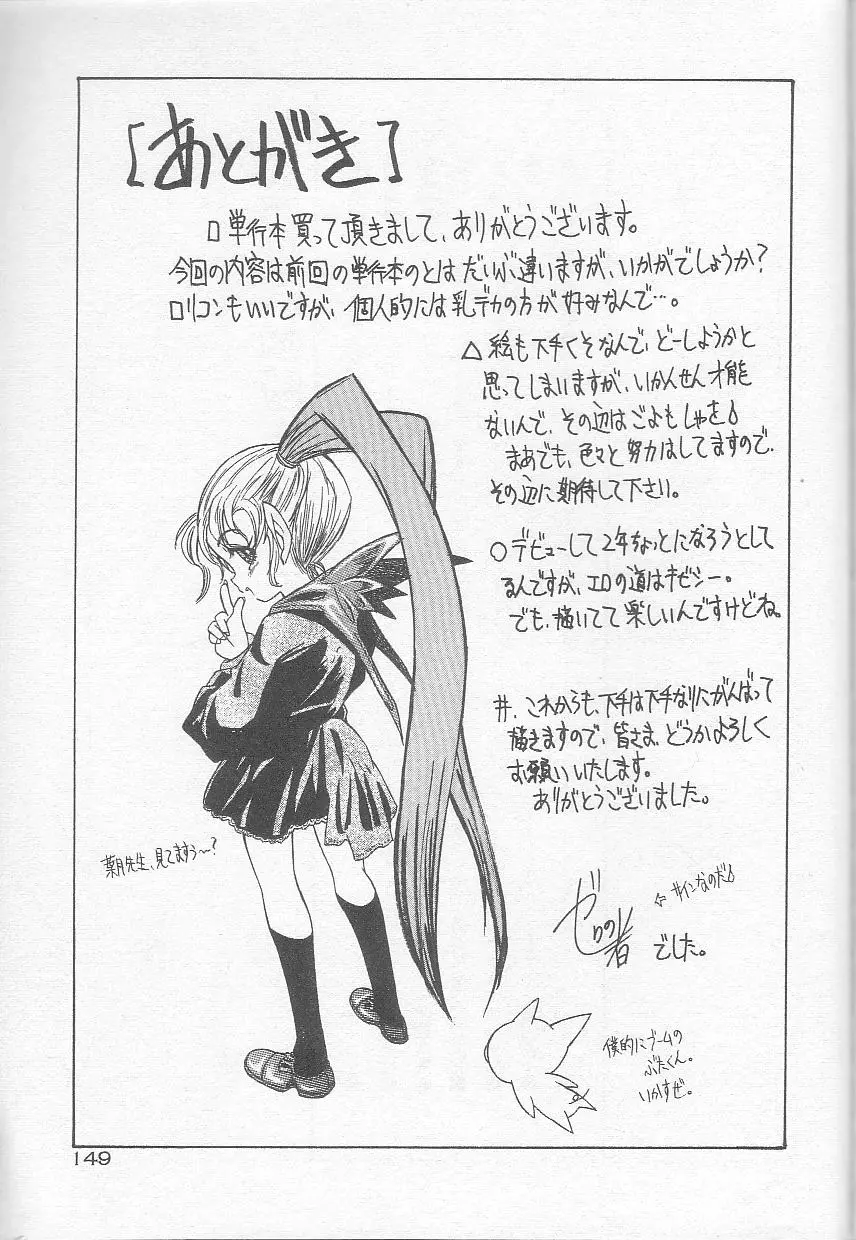 [あとがき]
□単行本買って頂きまして、ありがとうございます。
今回の内容は前回の単行本のとはだいぶ違いますが、いかがでしょうか?
ロリコンもいいですが、個人的には乳デカの方が好みなんで…。
△絵も下手くそなんで、どーしようかと
思ってしまいますが、いかんせん才能
ないんで、その辺はごよもしゃを♪
まあでも、色々と努力はしてますので、
その辺に期待して下さい。
○デビューして2年ちょっとになろうとして
るんですが、エロの道はキビシー。
でも、描いてて楽しいんですけどね。
井.これからも、下手は下手なりにがんばって
描きますので、皆さま、どうかよろしく
お願いいたします。
ありがとうございました。
先生、見てますぅ〜?
⇦サインなのだ♪
ゼロの者
でした。
僕的にブームの
ぶたくん。
いかすぜ。
149